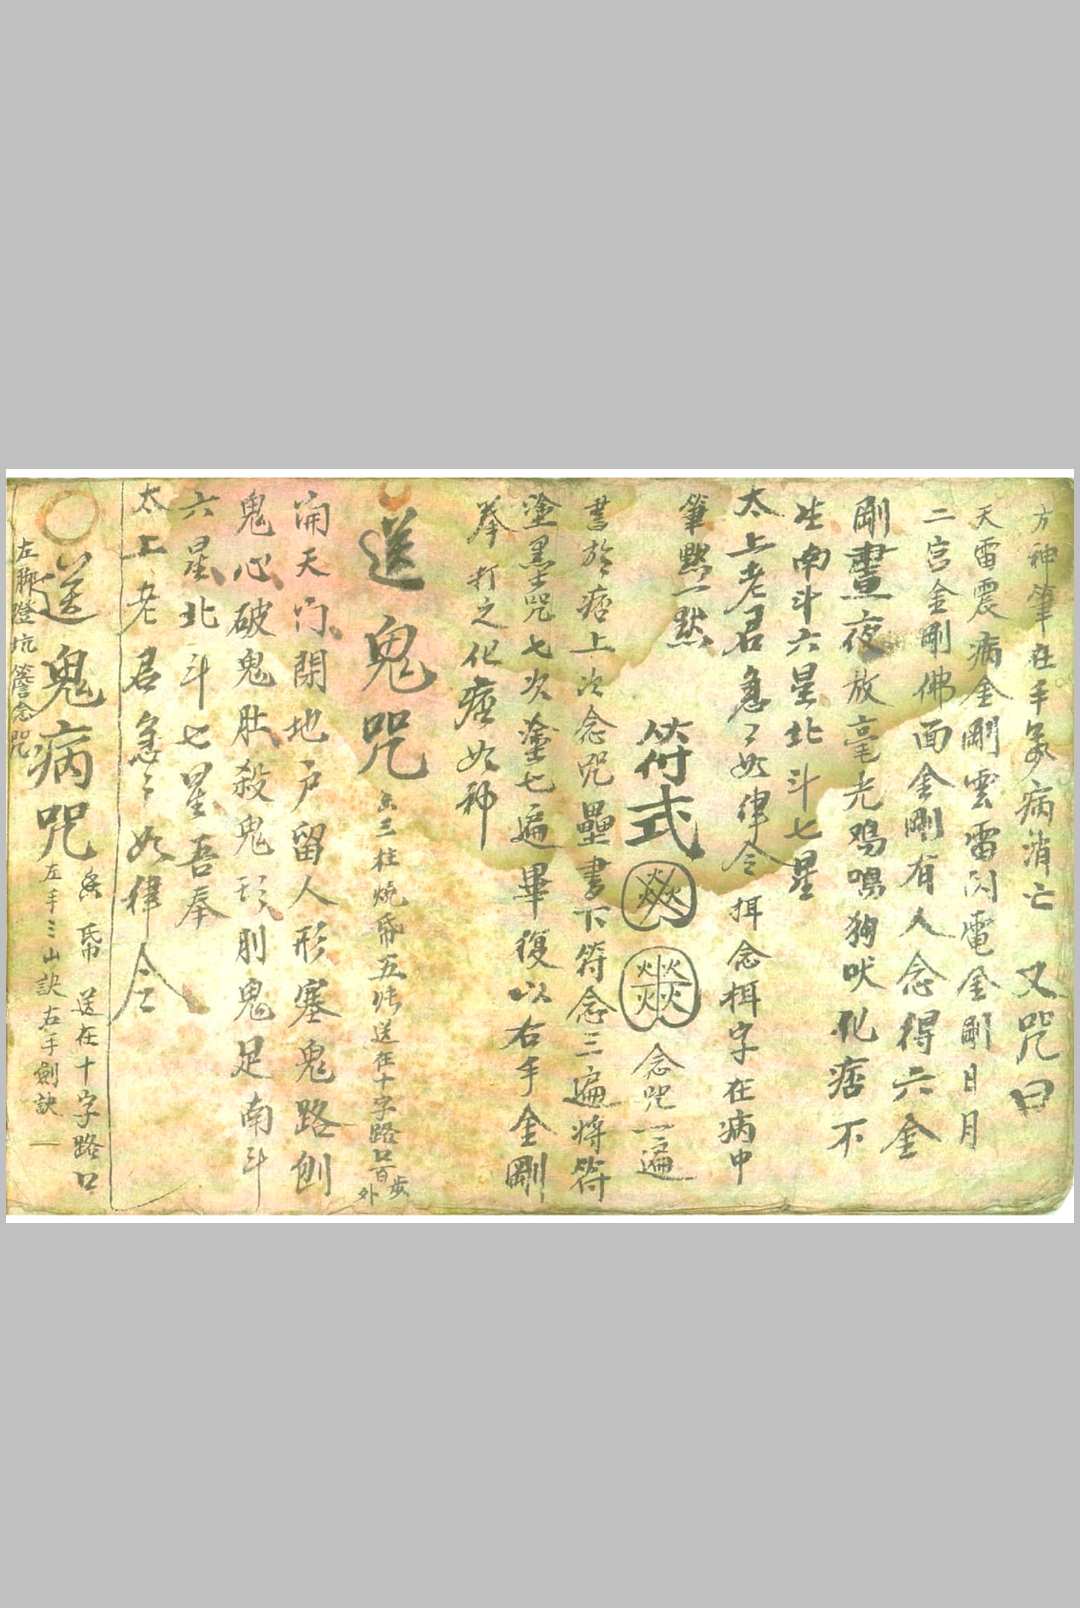 方神筆在手象病消亡 又咒曰
天雷震病金剛雲雷閃電金剛日月
二宫金剛佛面金剛有人念得六金
剛晝夜放毫光鷄鳴狗吠化痞不
生南斗六星北斗七星
太上老君急〻如律令 揖念揖字在病中
筆㸃一㸃
符式 念咒一遍
書於痞上次念咒壘書下符念三遍将符
塗黑咒七次塗七遍畢復以右手金剛
拳打之化痞如神
送鬼咒 三柱燒帋五帋送在十字路口百步外
開天门閉地户留人形塞鬼路刨
鬼心破鬼肚殺鬼形刖鬼足南斗
六星北斗七星吾奉
太上老君急〻如律令
送鬼病咒 帋 送在十字路口
左手三山訣右手劍訣一
左脚蹬坑簷念咒